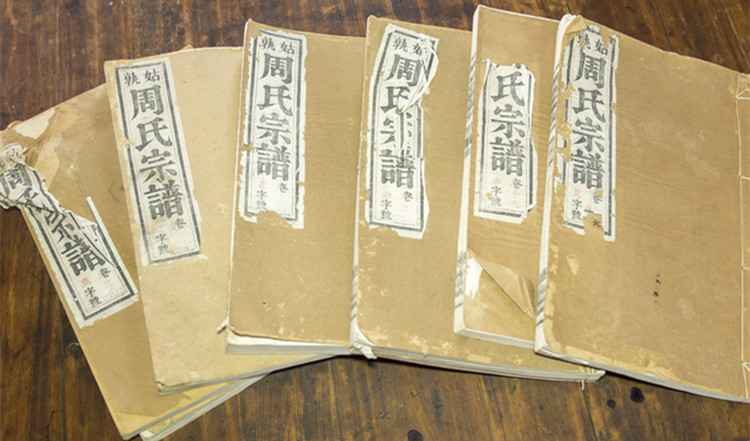 周
譜
卷
字號
姑孰
周氏宗譜
卷
字號
姑孰
周氏宗譜
卷
字號
姑孰
周氏宗譜
卷
字號
氏宗譜
卷
字號
姑
周氏宗譜
卷